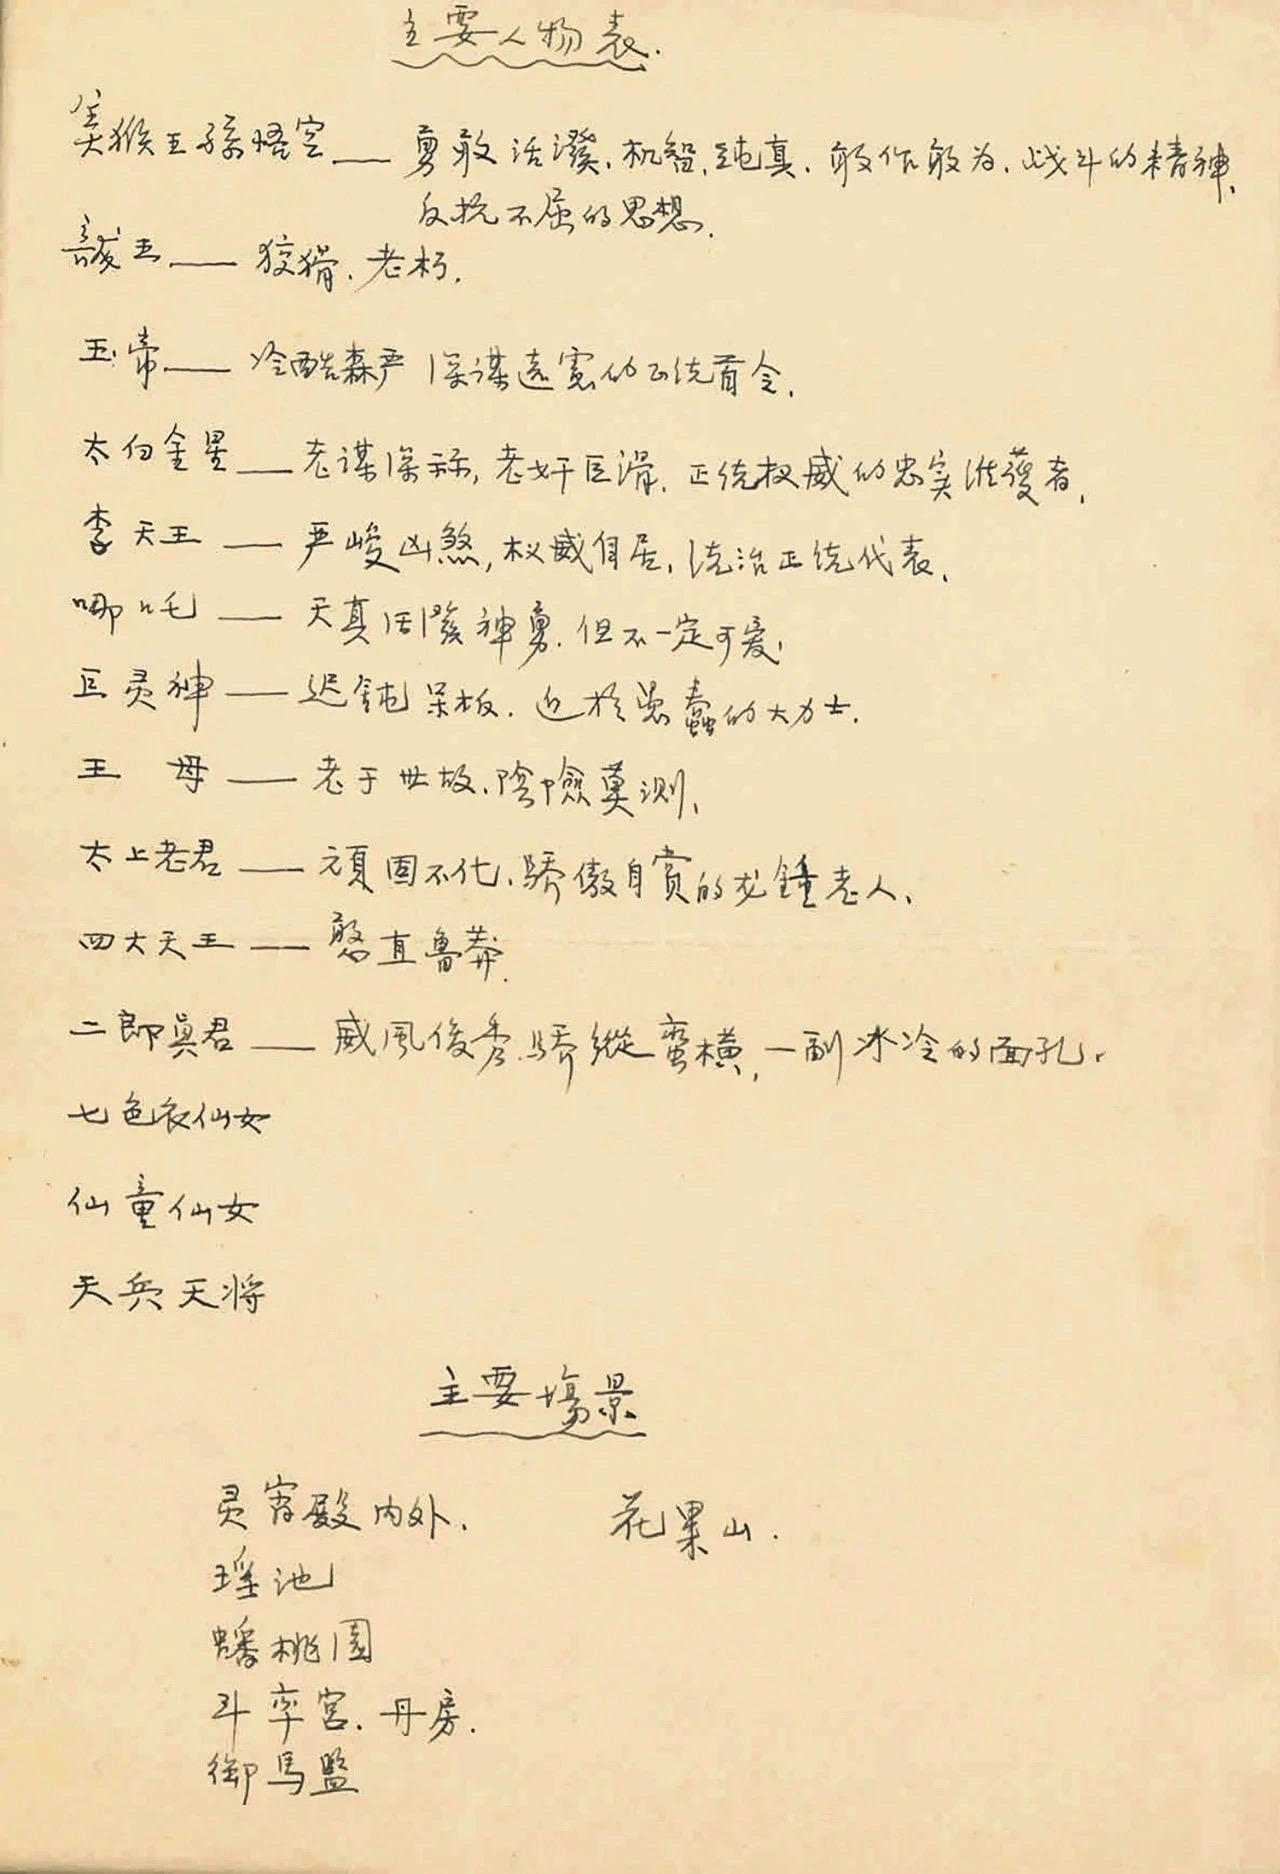 主要人物表.
美猴王孫悟空——勇敢活潑、机智、純真、敢作敢为、战斗的精神、
反抗不屈的思想.
龍王——狡猾、老朽.
玉帝——冷酷森严 深谋遠慮的正统首令.
太白金星——老谋深祘,老奸巨滑、正统权威的忠实維護者.
李天王——严峻凶煞,权威自居,统治正统代表.
哪吒——天真活潑神勇.但不一定可爱.
巨灵神——迟鈍呆板.近於愚蠢的大力士.
王 母——老于世故、陰險莫测.
太上老君——頑固不化、驕傲自賞的龙鍾老人.
四大天王——憨直魯莽.
二郎真君——威風俊秀.驕縱蛮横,一副冰冷的面孔.
七色衣仙女
仙童仙女
天兵天将
主要場景
灵宵殿内外. 花果山.
瑶池
蟠桃園
斗率宮.丹房.
御馬監